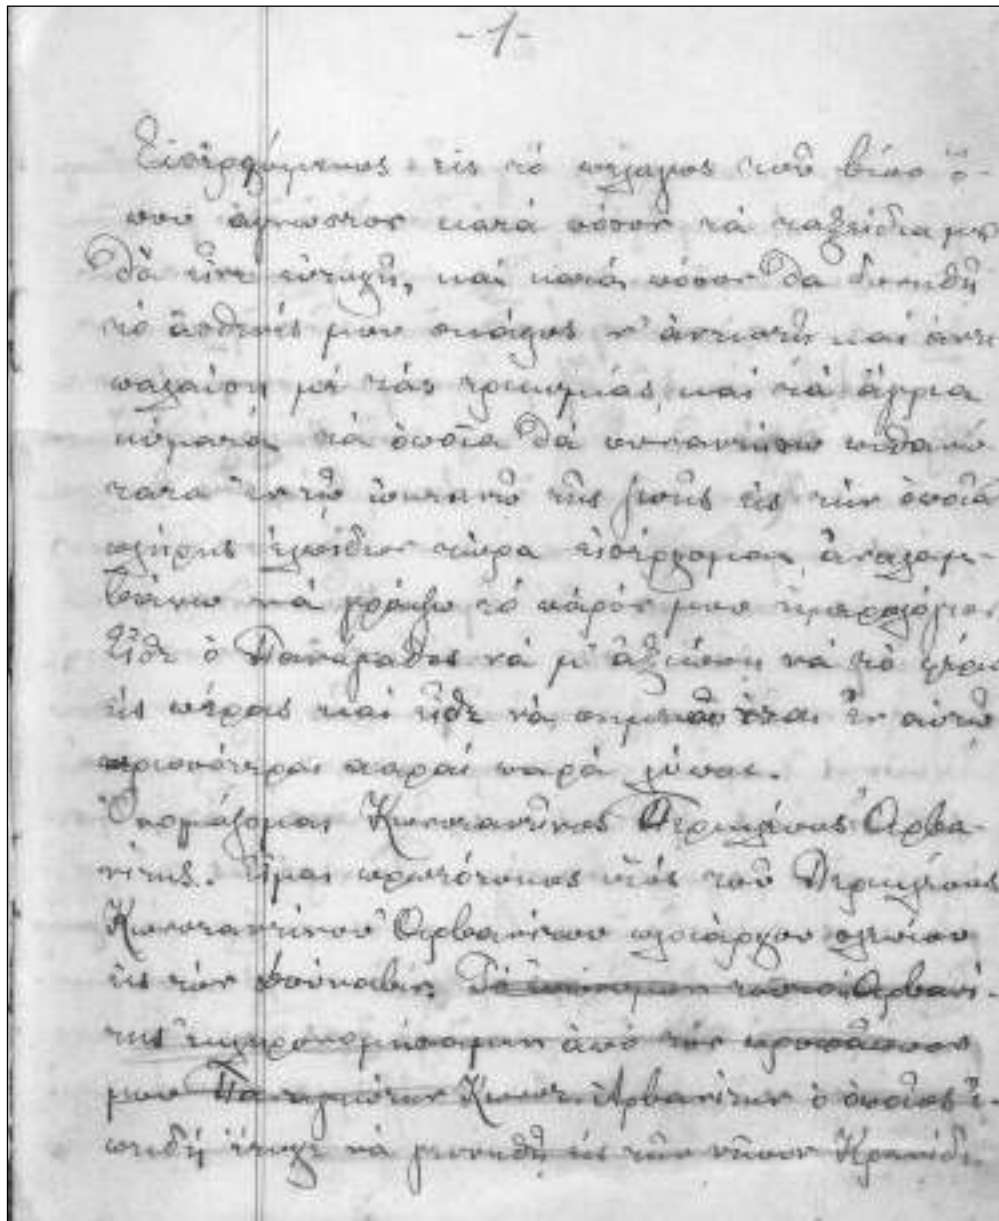 -1-
Εἰσερχόμενος εἰς τὸ πέλαγος τοῦ βίου ὅ-
που ἄγνωστον κατὰ πόσον τὰ ταξείδια μου
θὰ εἶνε εὐτυχῆ, καὶ κατὰ πόσον θὰ δυνηθῇ
τὸ ἀσθενές μου σκάφος ν' ἀντιστῇ καὶ ἀντι
παλαίσῃ μὲ τὰς τρικυμίας καὶ τὰ ἄγρια
κύματα τὰ ὁποῖα θὰ συναντήσω πιθανώ
τατα ἐν τῷ ὠκεανῷ τῆς ζωῆς εἰς τὴν ὁποίαν
πλήρης ἐλπίδων τώρα εἰσέρχομαι, ἀναλαμ-
βάνω νὰ γράψω τὸ παρόν μου ἡμερολόγιον
Εἴθε ὁ Πανάγαθος νὰ μ' ἀξιώσῃ νὰ τὸ φέρω
εἰς πέρας καὶ εἴθε νὰ ἐν αὐτῷ
περισσότεραι χαραὶ παρὰ λύπαι.
Ὀνομάζομαι Κωνσταντῖνος Περικλέους Ἀρβα-
νίτης. Εἶμαι πρωτότοκος υἱὸς τοῦ Περικλέους
Κωνσταντίνου Ἀρβανίτου πλοιάρχου
εἰς τὸν Δούναβιν. Τὸ ἐπώνυμον τοῦτο Ἀρβανί-
της ἐκληρονομήσαμεν ἀπὸ τὸν προπάππον
μου Παναγιώτην Κωνστ. Ἀρβανίτην ὁ ὁποῖος ἐ-
πειδὴ ἔτυχε νὰ γεννηθῇ εἰς τὴν νῆσον Κρανίδι